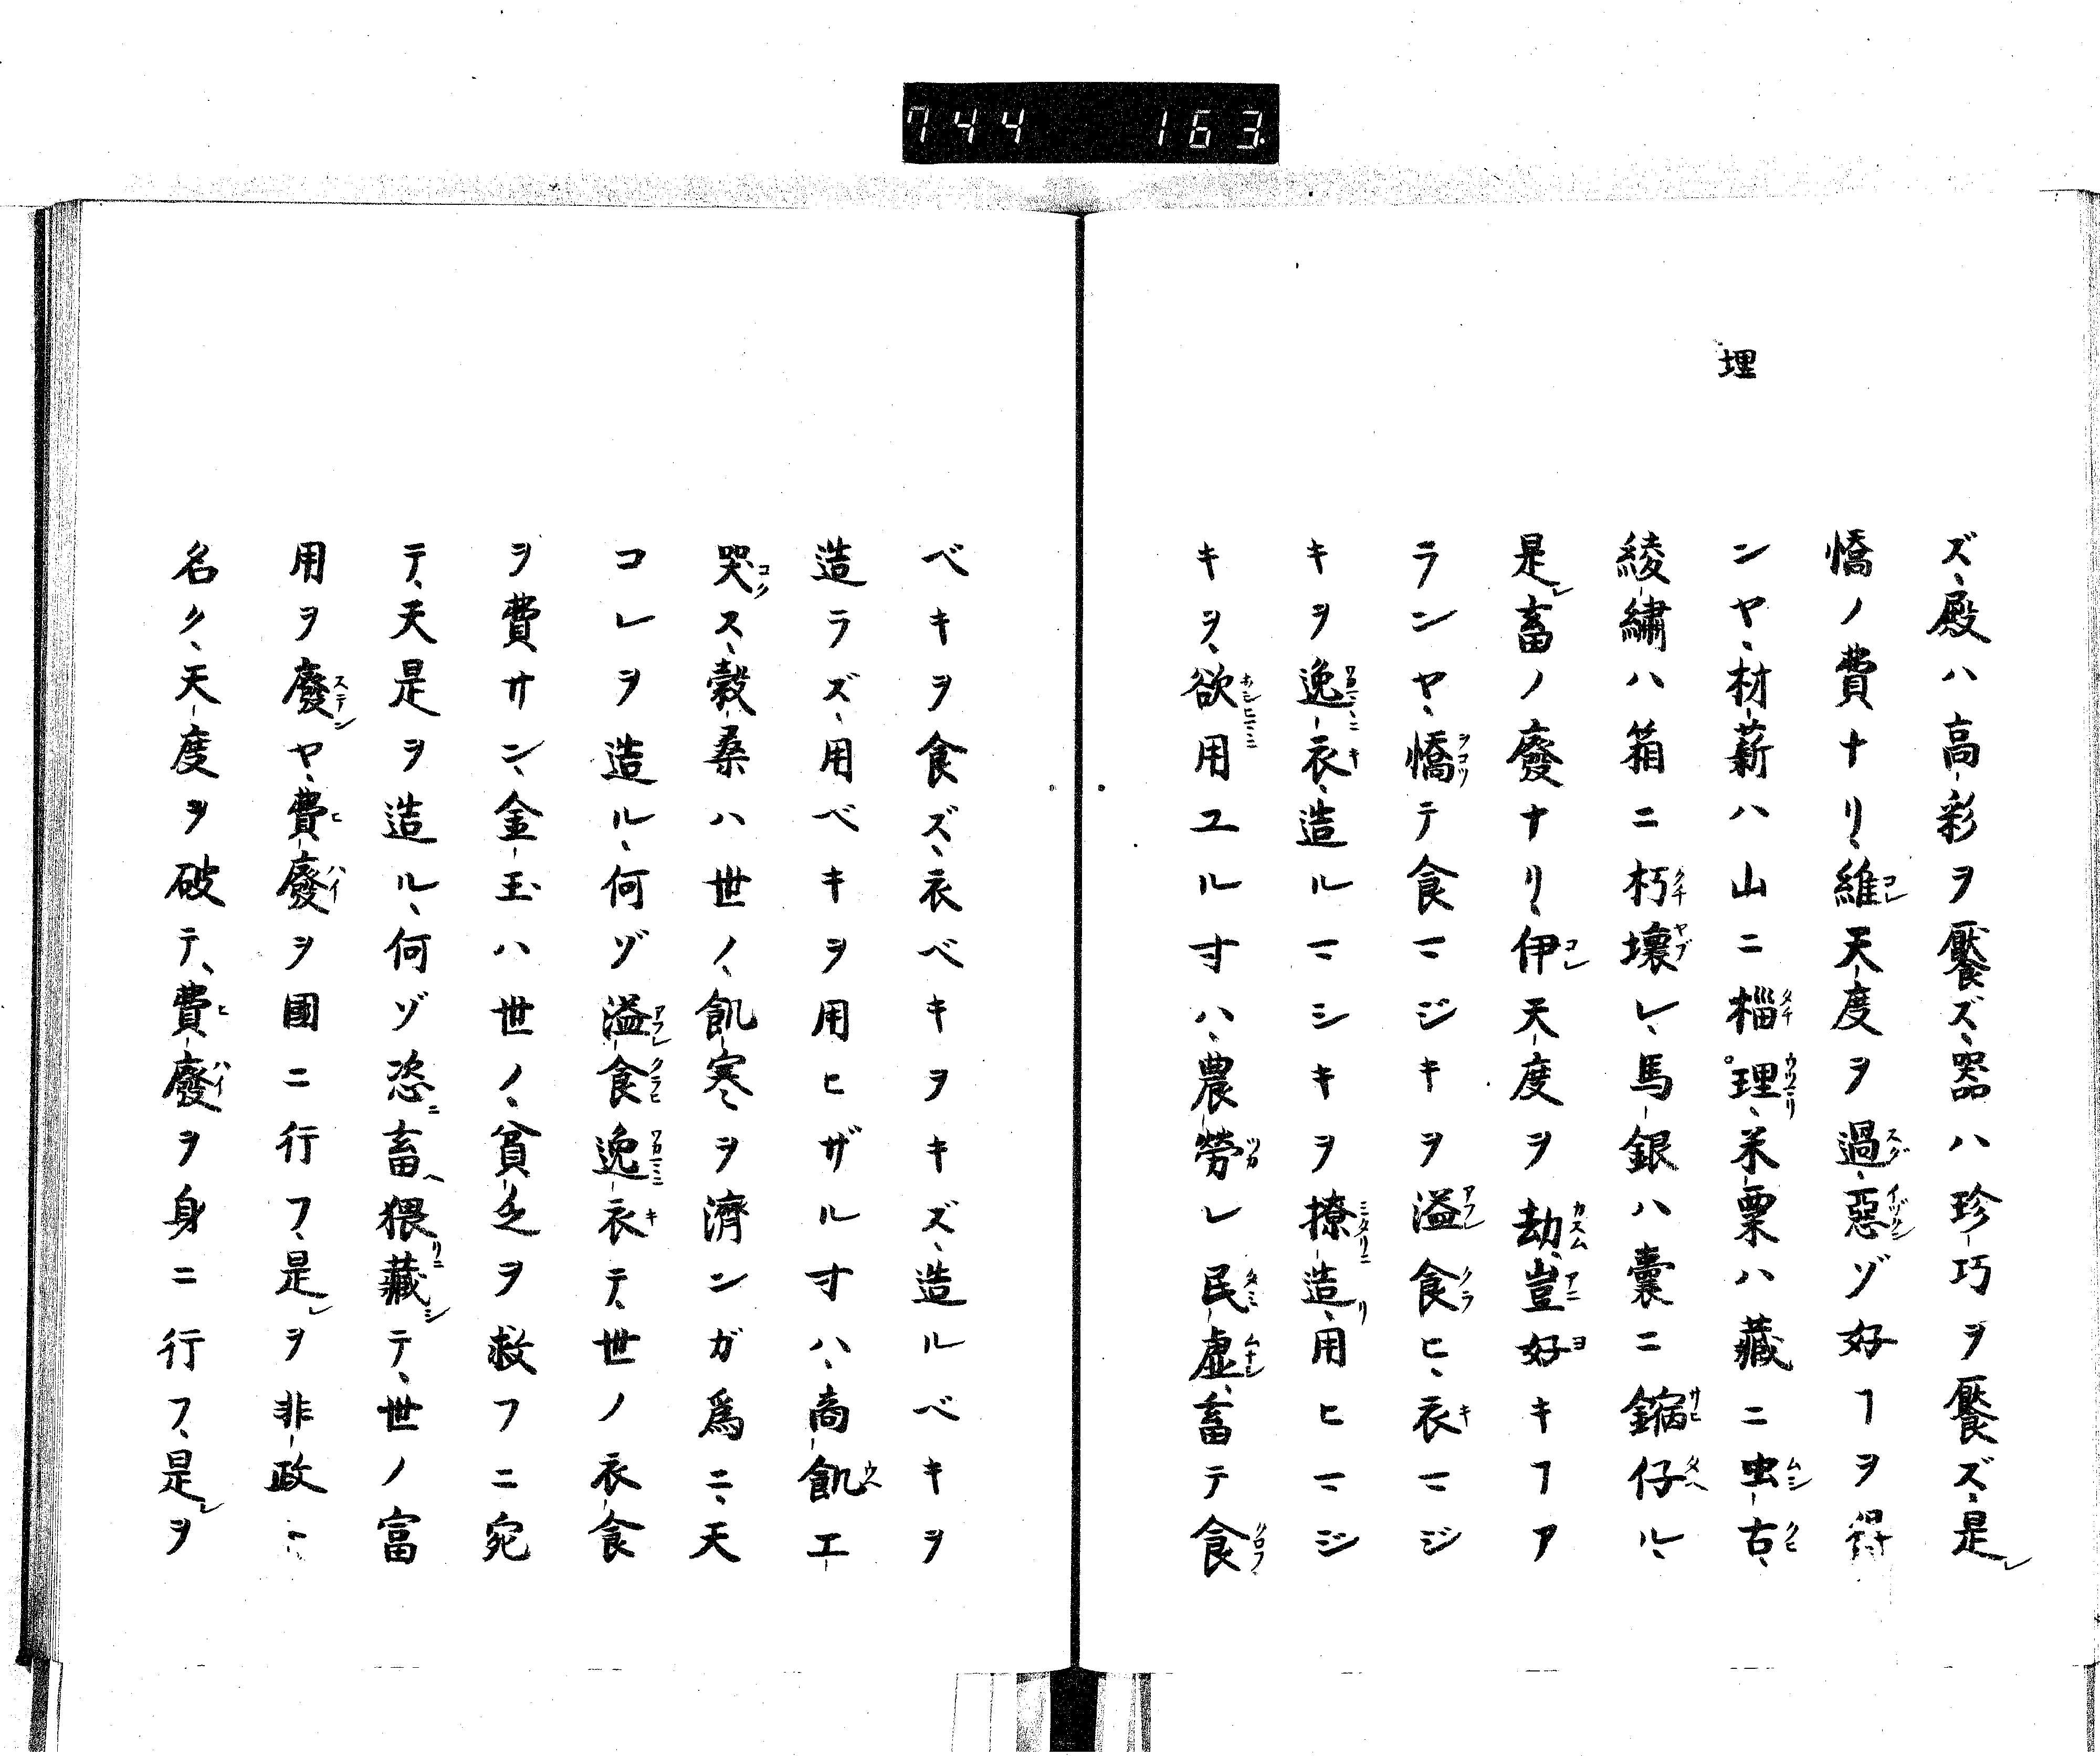 744 163.
埋
ズ、殿ハ高彩ヲ饜ズ、器ハ珍巧ヲ饜ズ、是レ
憍ノ費ナリ、維天度ヲ過、惡ゾ好ヿヲ得
ンヤ、材薪ハ山ニ椔理、米粟ハ藏ニ虫古、
綾繡ハ箱ニ朽壞レ、馬銀ハ囊ニ鏥仔ル、
是レ畜ノ廢ナリ、伊天度ヲ劫、豈好キヿア
ランヤ、憍テ食マジキヲ溢食ヒ、衣マジ
キヲ逸衣、造ルマシキヲ撩造リ、用ヒマジ
キヲ、欲用ユル寸ハ、農勞レ民虛、畜テ食
ベキヲ食ズ、衣ベキヲキズ、造ルベキヲ
造ラズ、用ベキヲ用ヒザル寸ハ、商飢エ
哭ス、穀桑ハ世ノ、飢寒ヲ濟ンガ爲ニ、天
コレヲ造ル、何ゾ溢食逸衣テ、世ノ衣食
ヲ費サン、金玉ハ世ノ、貧乏ヲ救フニ宛
テ、天是ヲ造ル、何ゾ恣ニ畜ヘ猥リニ藏シテ、世ノ富
用ヲ廢ンヤ、費廢ヲ國ニ行フ、是レヲ非政ト
名ク、天度ヲ破テ、費廢ヲ身ニ行フ、是レヲ